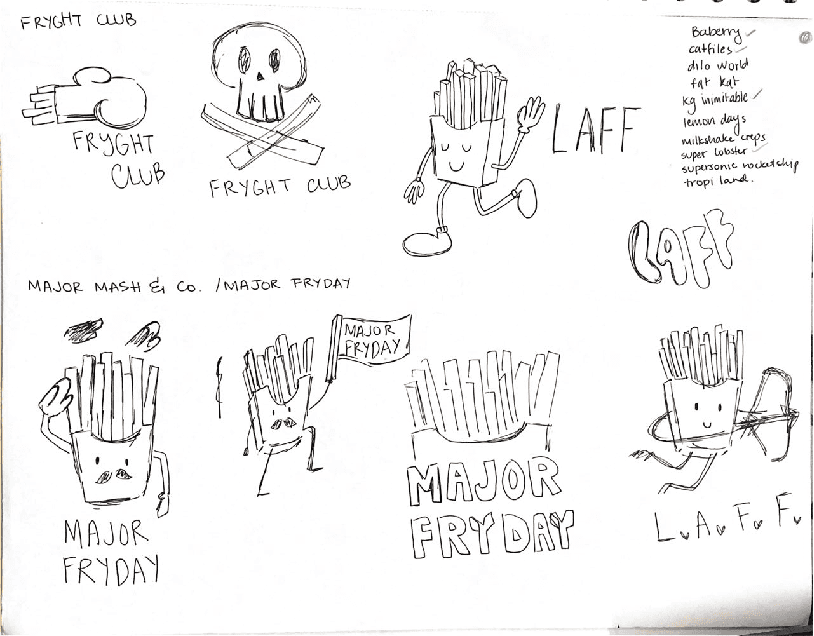 FRYGHT CLUB
FRYGHT
CLUB
FRYGHT CLUB
LAFF
Baberry
catfiles
dilo world
fat kat
kg inimitable
lemon days
milkshake creps
super lobster
supersonic rocketship
tropi land.
LAFF
MAJOR MASH & CO. / MAJOR FRYDAY
MAJOR
FRYDAY
MAJOR
FRYDAY
MAJOR
FRYDAY
L.A.F.F.